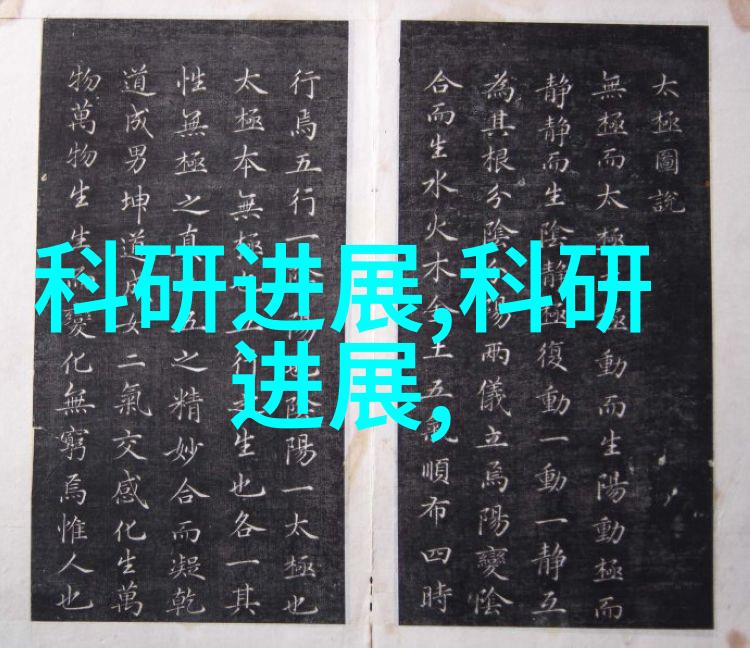 太極圖說
無極而太極極動而生陽動極而
静静而生陰静極復動一動一静互
為其根分陰陽兩儀立焉陽變陰
合而生水火木金土五氣順布四時
行焉五行一陰陽也陰陽一太極也
太極本無極也五行之生也各一其
性無極之真五之精妙合而凝乾
道成男坤道成女二氣交感化生萬
物萬物生生而變化無窮焉惟人也
科研进展,科研
进展,